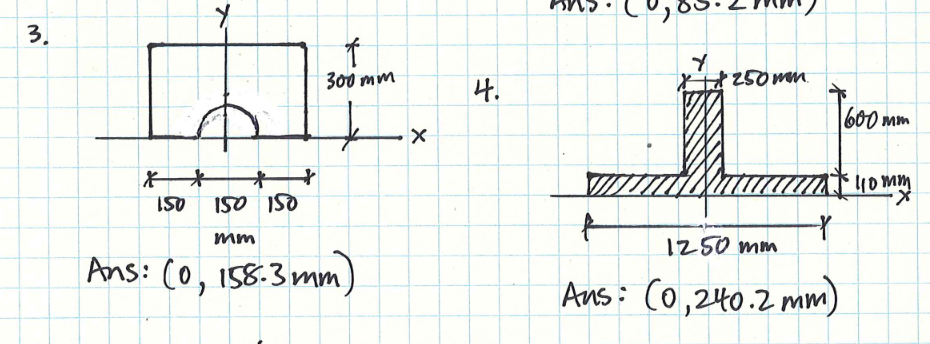 Ans: (0, 83.2 mm)
3.
Y
300 mm
X
150 150 150
mm
Ans: (0, 158.3 mm)
4.
Y
250 mm
600 mm
110 mm
X
1250 mm
Ans: (0, 240.2 mm)